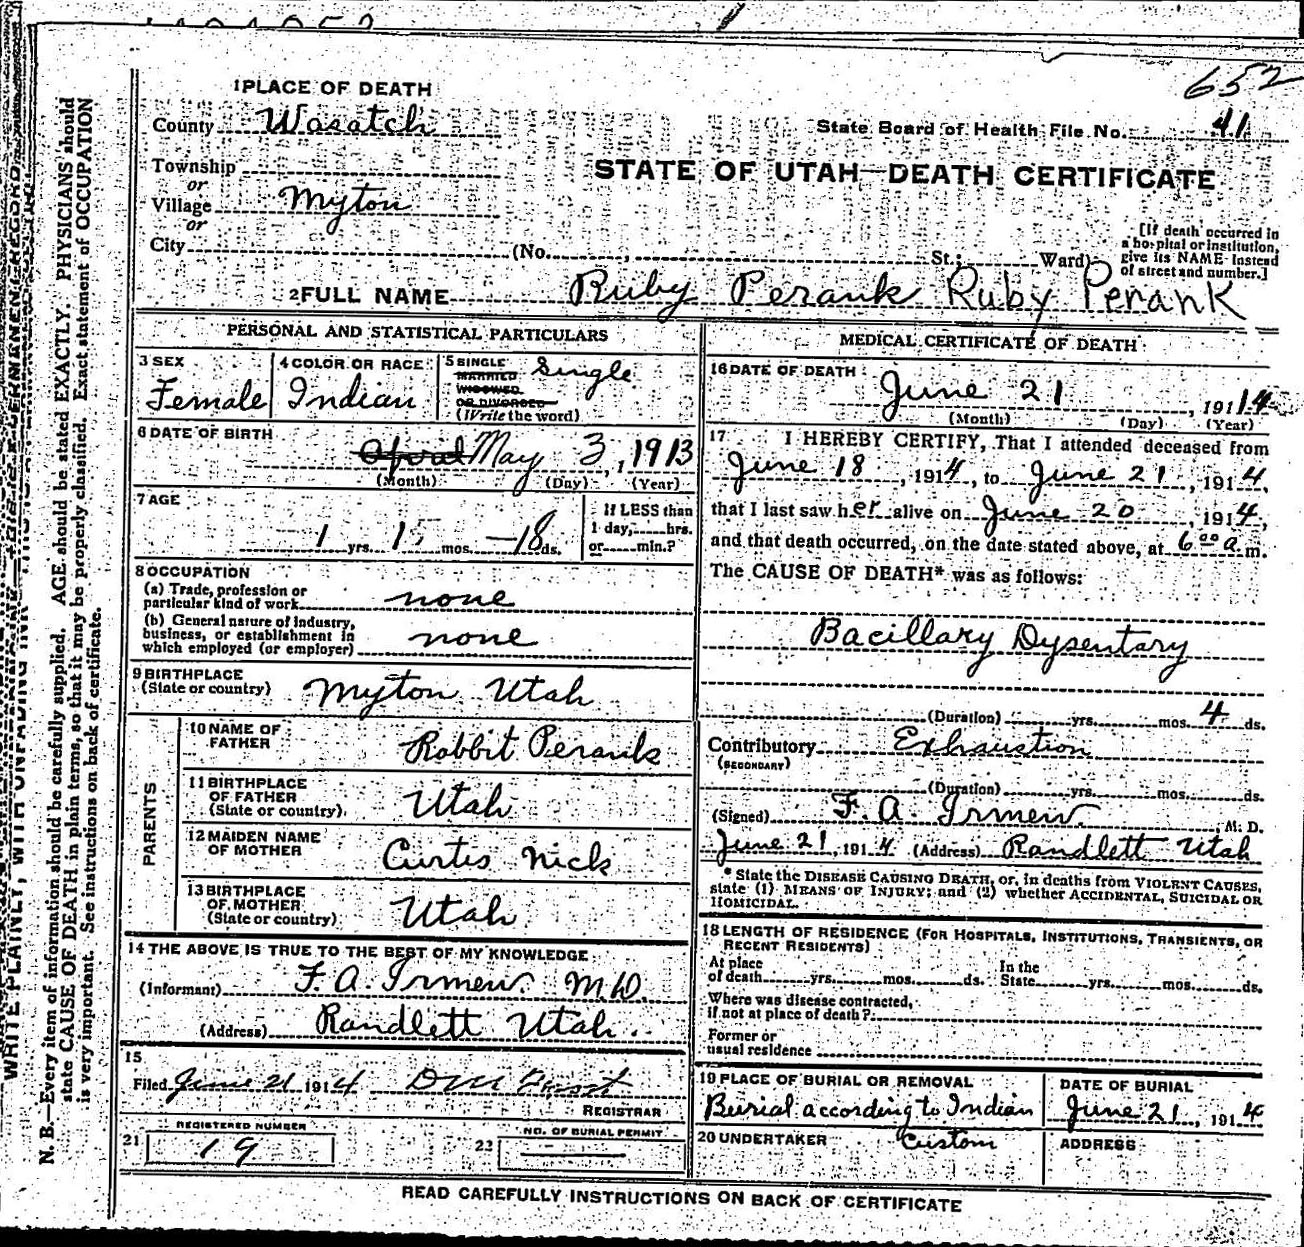 652
1 PLACE OF DEATH
County Wasatch
State Board of Health File No. 41
Township
or
Village Myton
or
City (No. , St.; Ward)
STATE OF UTAH—DEATH CERTIFICATE
[If death occurred in a hospital or institution, give its NAME instead of street and number.]
2 FULL NAME Ruby Perank Ruby Perank
PERSONAL AND STATISTICAL PARTICULARS
3 SEX Female
4 COLOR OR RACE Indian
5 SINGLE MARRIED WIDOWED OR DIVORCED (Write the word) Single
6 DATE OF BIRTH
April May 3, 1913
(Month) (Day) (Year)
7 AGE
1 yrs. 1 mos. 18 ds.
If LESS than 1 day, hrs. or min.?
8 OCCUPATION
(a) Trade, profession or particular kind of work none
(b) General nature of industry, business, or establishment in which employed (or employer) none
9 BIRTHPLACE (State or country) Myton Utah
PARENTS
10 NAME OF FATHER Robbit Perank
11 BIRTHPLACE OF FATHER (State or country) Utah
12 MAIDEN NAME OF MOTHER Curtis Nick
13 BIRTHPLACE OF MOTHER (State or country) Utah
14 THE ABOVE IS TRUE TO THE BEST OF MY KNOWLEDGE
(Informant) F. A. Irmen. M.D.
(Address) Randlett Utah
15
Filed June 21 1914
REGISTRAR
21 REGISTERED NUMBER 19
22 NO. OF BURIAL PERMIT
MEDICAL CERTIFICATE OF DEATH
16 DATE OF DEATH June 21, 1914
(Month) (Day) (Year)
17 I HEREBY CERTIFY, That I attended deceased from
June 18, 1914, to June 21, 1914,
that I last saw her alive on June 20, 1914,
and that death occurred, on the date stated above, at 6 00 a m.
The CAUSE OF DEATH* was as follows:
Bacillary Dysentary
(Duration) yrs. mos. 4 ds.
Contributory Exhaustion
(SECONDARY)
(Duration) yrs. mos. ds.
(Signed) F. A. Irmen, M. D.
June 21, 1914 (Address) Randlett Utah
* State the DISEASE CAUSING DEATH, or, in deaths from VIOLENT CAUSES,
state (1) MEANS OF INJURY; and (2) whether ACCIDENTAL, SUICIDAL OR
HOMICIDAL.
18 LENGTH OF RESIDENCE (FOR HOSPITALS, INSTITUTIONS, TRANSIENTS, OR
RECENT RESIDENTS)
At place of death yrs. mos. ds. In the State yrs. mos. ds.
Where was disease contracted,
if not at place of death?
Former or
usual residence
19 PLACE OF BURIAL OR REMOVAL
Burial according to Indian
Custom
DATE OF BURIAL
June 21, 1914
20 UNDERTAKER
ADDRESS
READ CAREFULLY INSTRUCTIONS ON BACK OF CERTIFICATE
N. B.—Every item of information should be carefully supplied. AGE should be stated EXACTLY. PHYSICIANS should
state CAUSE OF DEATH in plain terms, so that it may be properly classified. Exact statement of OCCUPATION
is very important. See instructions on back of certificate.
WRITE PLAINLY, WITH UNFADING INK